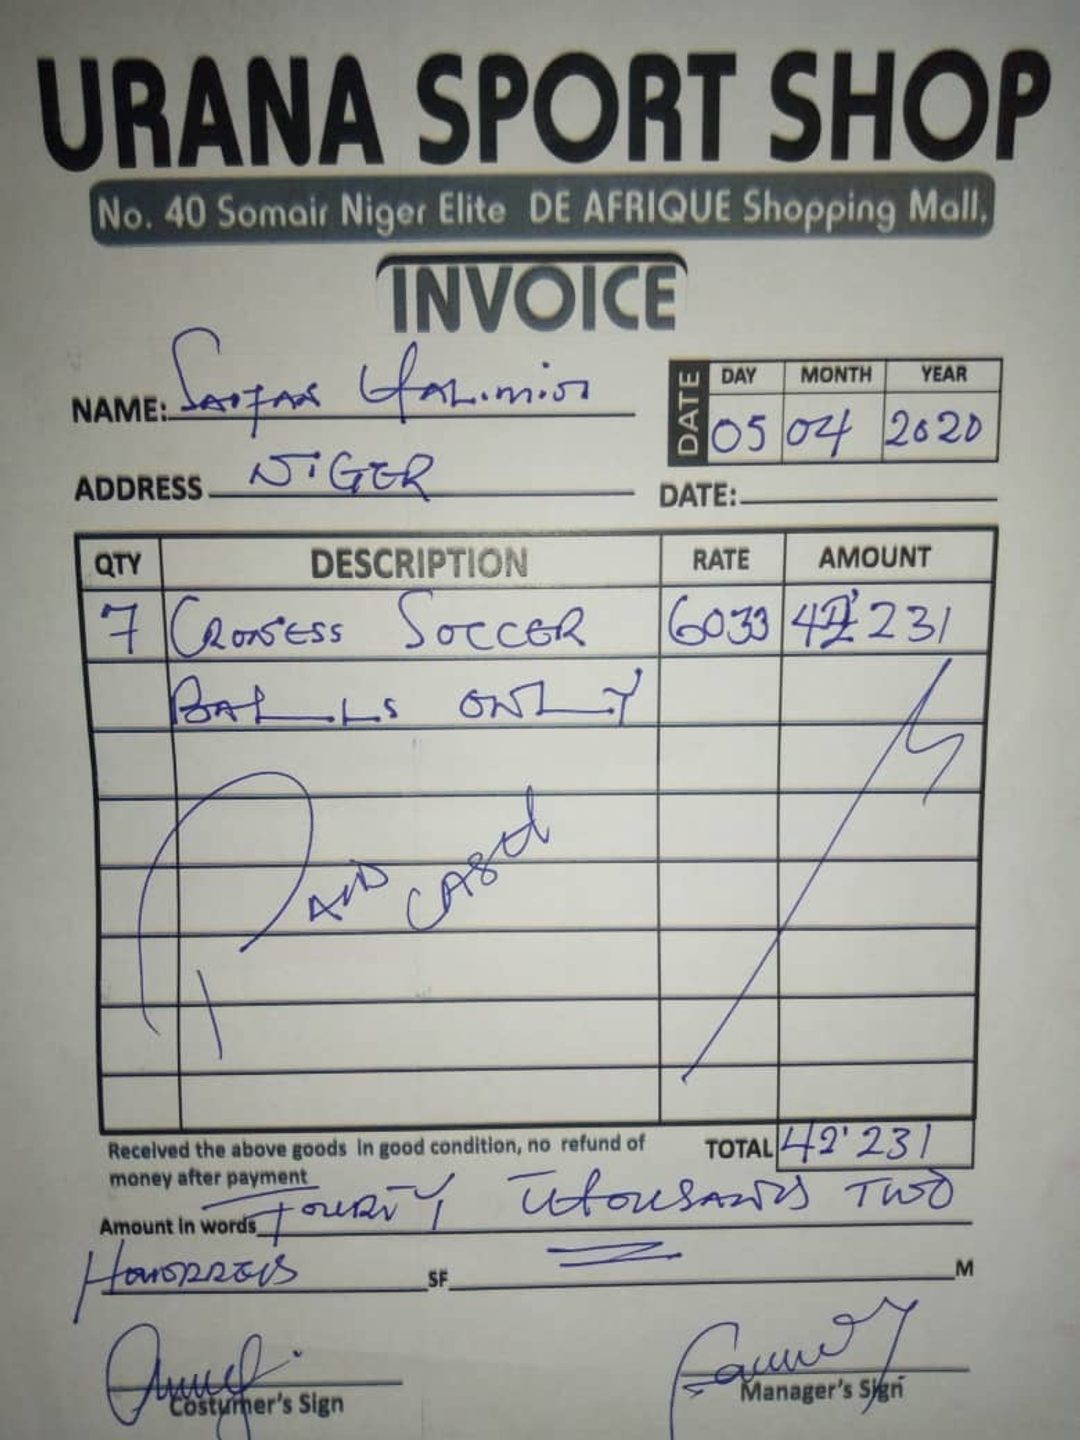 URANA SPORT SHOP
No. 40 Somair Niger Elite DE AFRIQUE Shopping Mall,
INVOICE
NAME:
ADDRESS NIGER
DATE DAY MONTH YEAR
05 04 2020
DATE:
QTY DESCRIPTION RATE AMOUNT
7 SOCCER 6033 42'231
BALLS ONLY
PAID CASH
Received the above goods in good condition, no refund of TOTAL 42'231
money after payment
Amount in words FOURTY THOUSANDS TWO
HONDREDS SF M
Costumer's Sign Manager's Sign